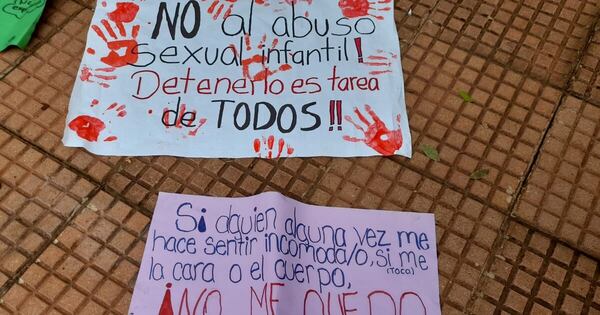 NO al abuso
sexual infantil!
Detenerlo es tarea
de TODOS!!
Si alguien alguna vez me
hace sentir incomoda/o, si me
(TOCO)
la cara o el cuerpo,
¡NO ME QUEDO